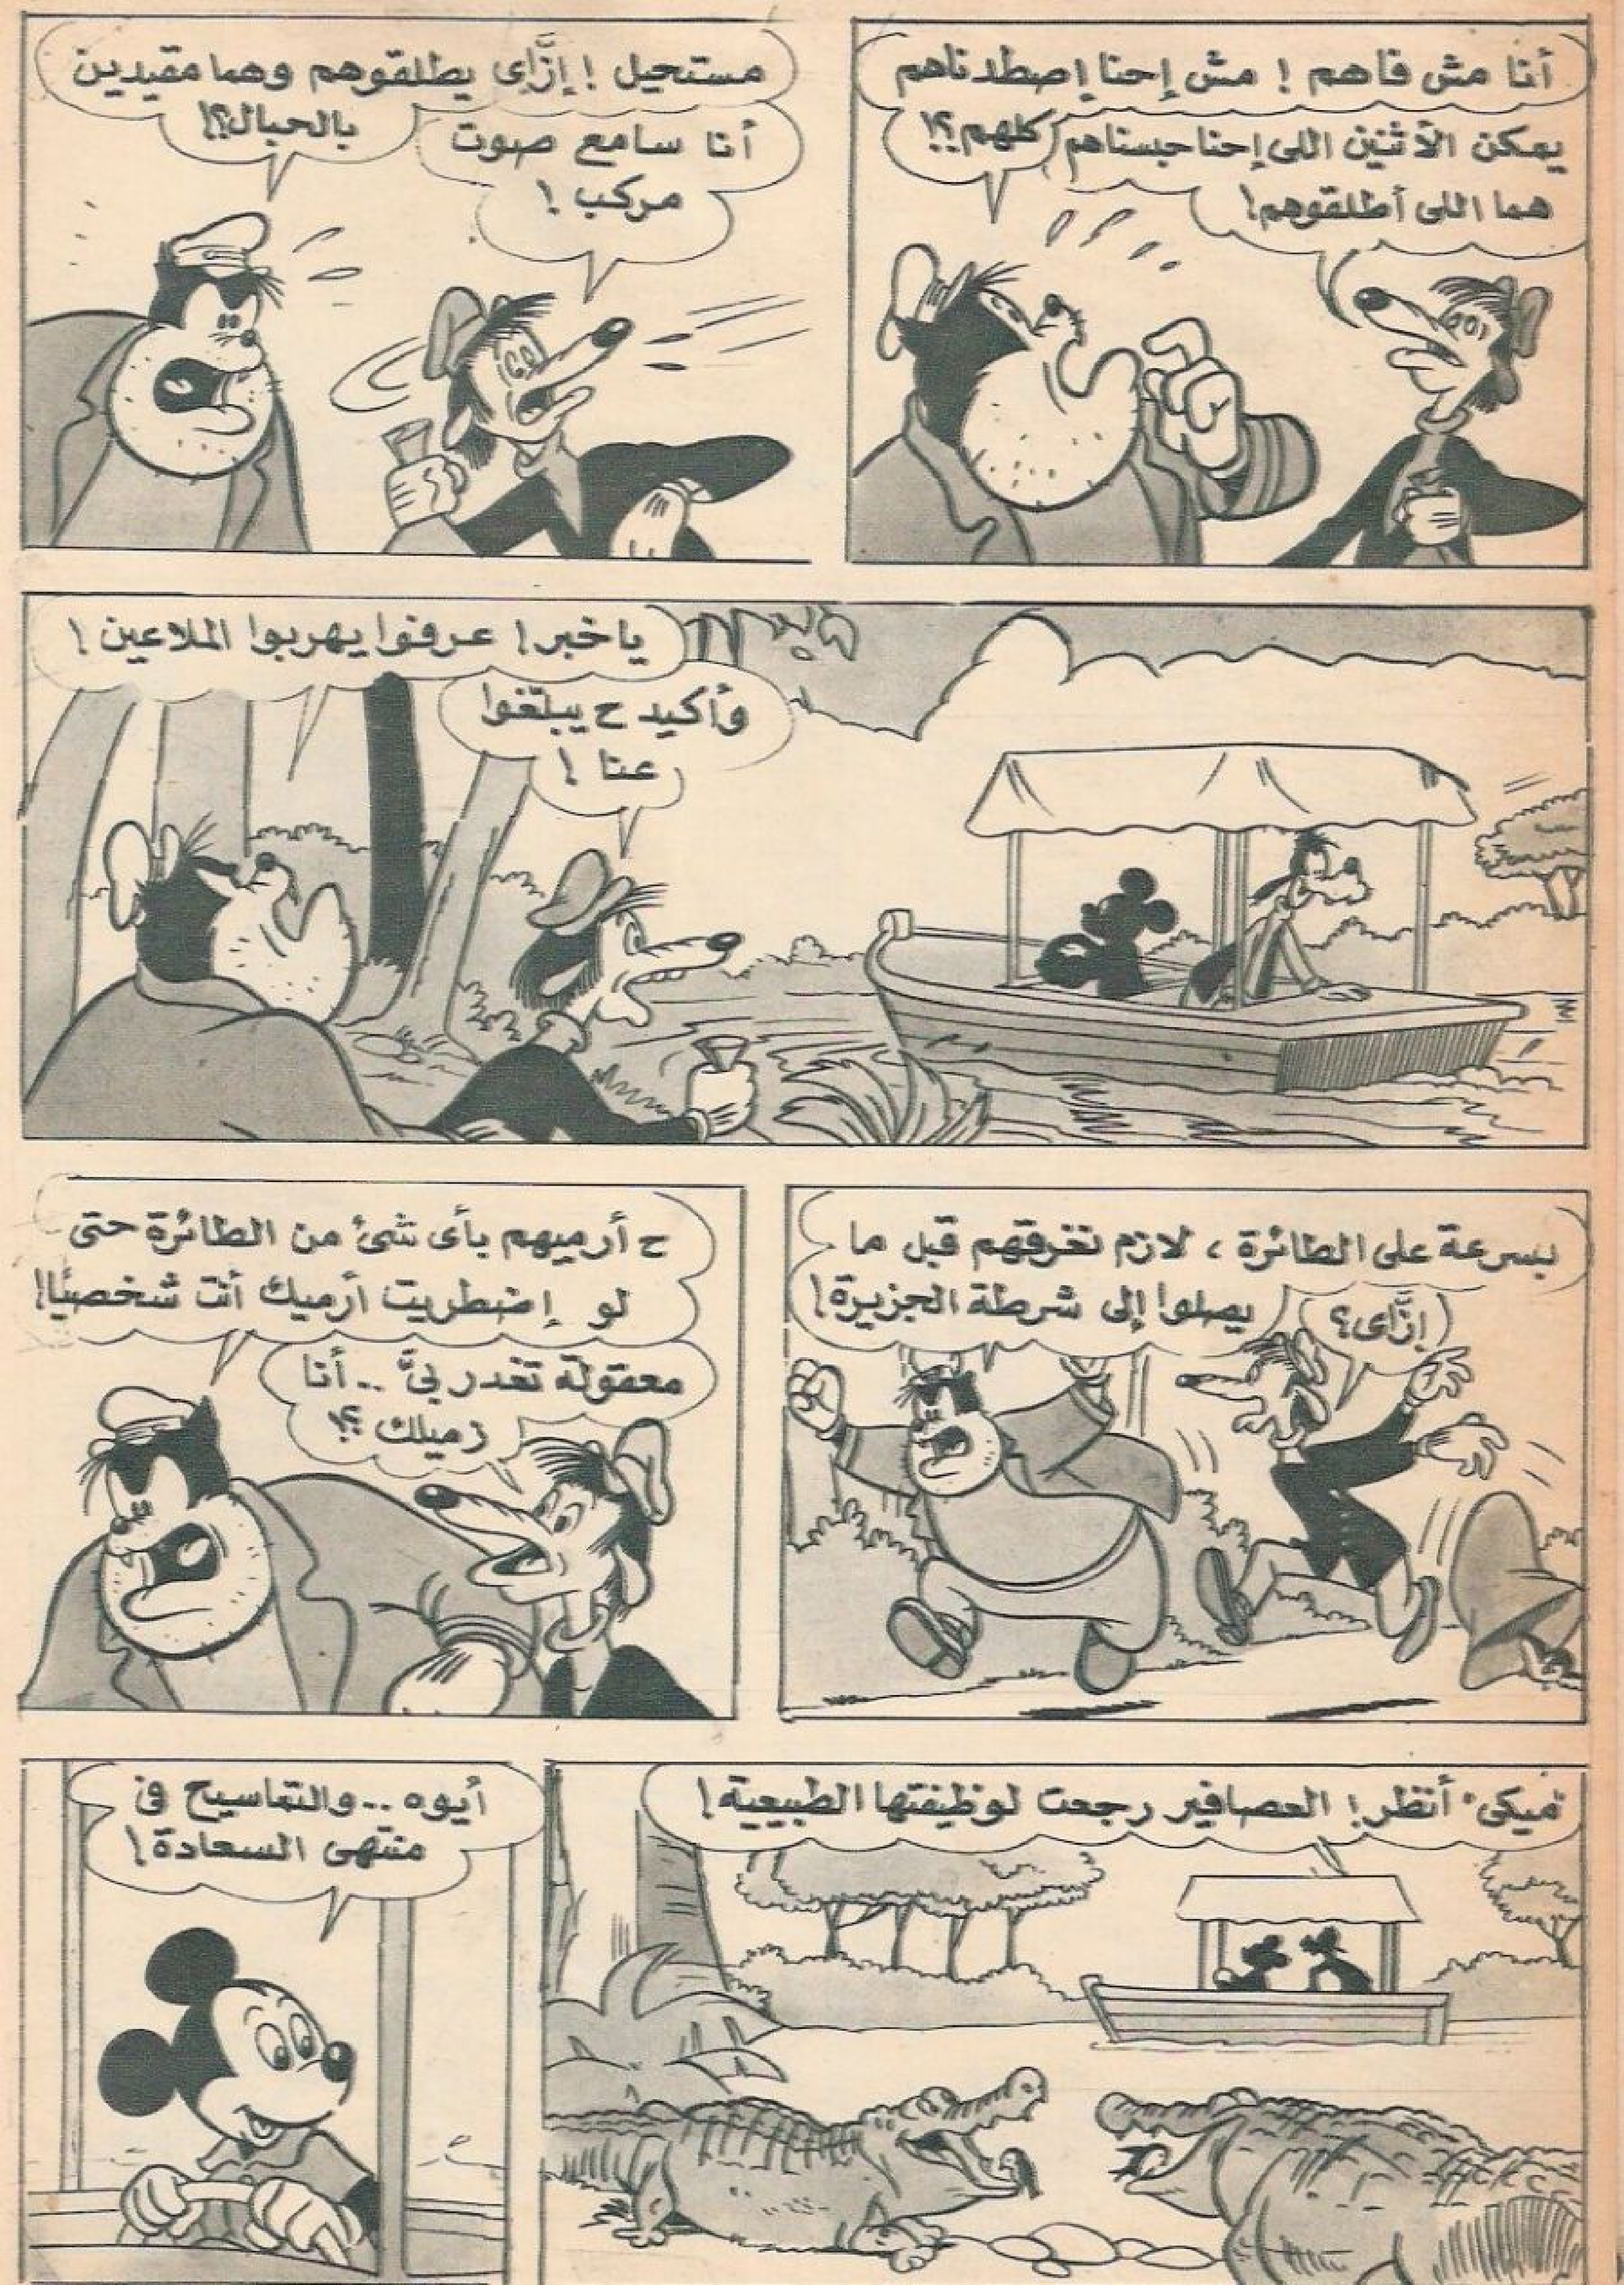 أنا مش فاهم ! مش إحنا إصطدناهم
كلهم ؟!
يمكن الأثنين اللى إحنا حبسناهم
هما اللى أطلقوهم !
مستحيل ! إزَّاى يطلقوهم وهما مقيدين
بالحبال ؟!
أنا سامع صوت
مركب !
ياخبر ! عرفوا يهربوا الملاعين !
وأكيد ح يبلّغوا
عنا !
بسرعة على الطائرة ، لازم نغرقهم قبل ما
يصلوا إلى شرطة الجزيرة !
إزَّاى ؟
ح أرميهم بأى شئ من الطائرة حتى
لو إضطريت أرميك أنت شخصيًا !
معقولة تغدر بىَّ .. أنا
زميلك ؟!
"ميكى" أنظر ! العصافير رجعت لوظيفتها الطبيعية !
أيوه .. والتماسيح فى
منتهى السعادة !